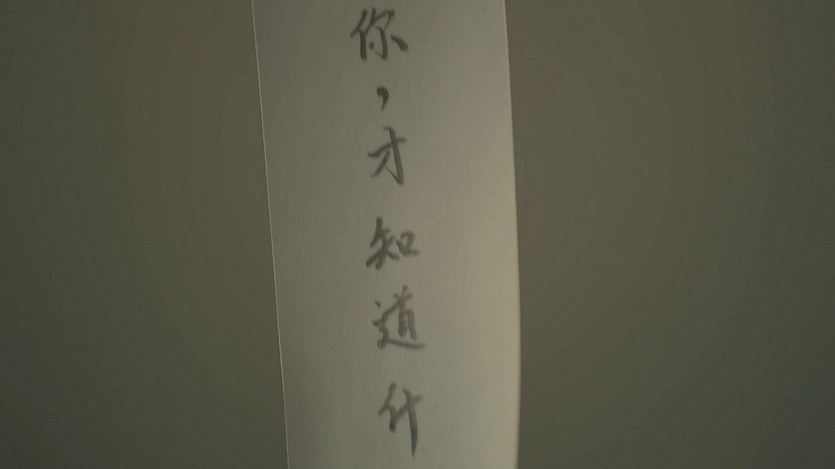 你，才知道什